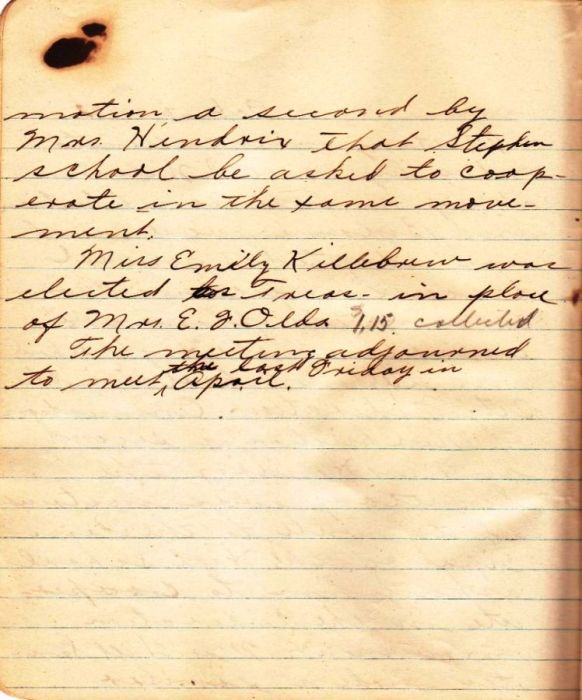 motion a second by
Mrs. Hendrix that Stephen
school be asked to coop-
erate in the same move-
ment.
Miss Emily Killebrew was
elected as Treas. in place
of Mrs. E. J. Olds $1.15 collected
The meeting adjourned
the last Friday in
to meet ^ April.